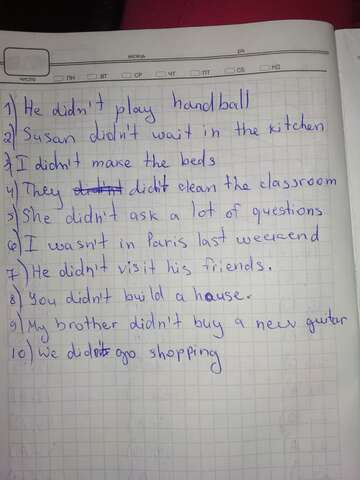 число месяц рік
ПН ВТ СР ЧТ ПТ СБ НД
1) He didn't play handball
2) Susan didn't wait in the kitchen
3) I didn't make the beds
4) They didn't clean the classroom
5) She didn't ask a lot of questions
6) I wasn't in Paris last weekend
7) He didn't visit his friends.
8) You didn't build a house.
9) My brother didn't buy a new guitar
10) We didn't go shopping